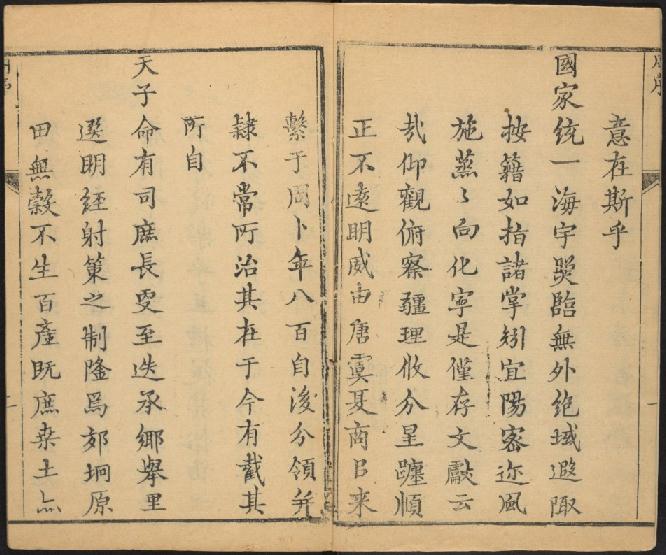 意在斯乎
國家統一海宇熒臨無外絶域遐陬
按籍如指諸掌矧宜陽密迩風
施蒸〻向化寧是僅存文獻云
㢤仰觀俯察疆理攸分星躔順
正不遠明威由唐虞夏商㠯来
繫于周卜年八百自後分領并
隸不常所治其在于今有載其
所自
天子命有司庶長叓至迭承鄉舉里
選明經射策之制隆爲郊坰原
田無穀不生百産既庶桒土亦